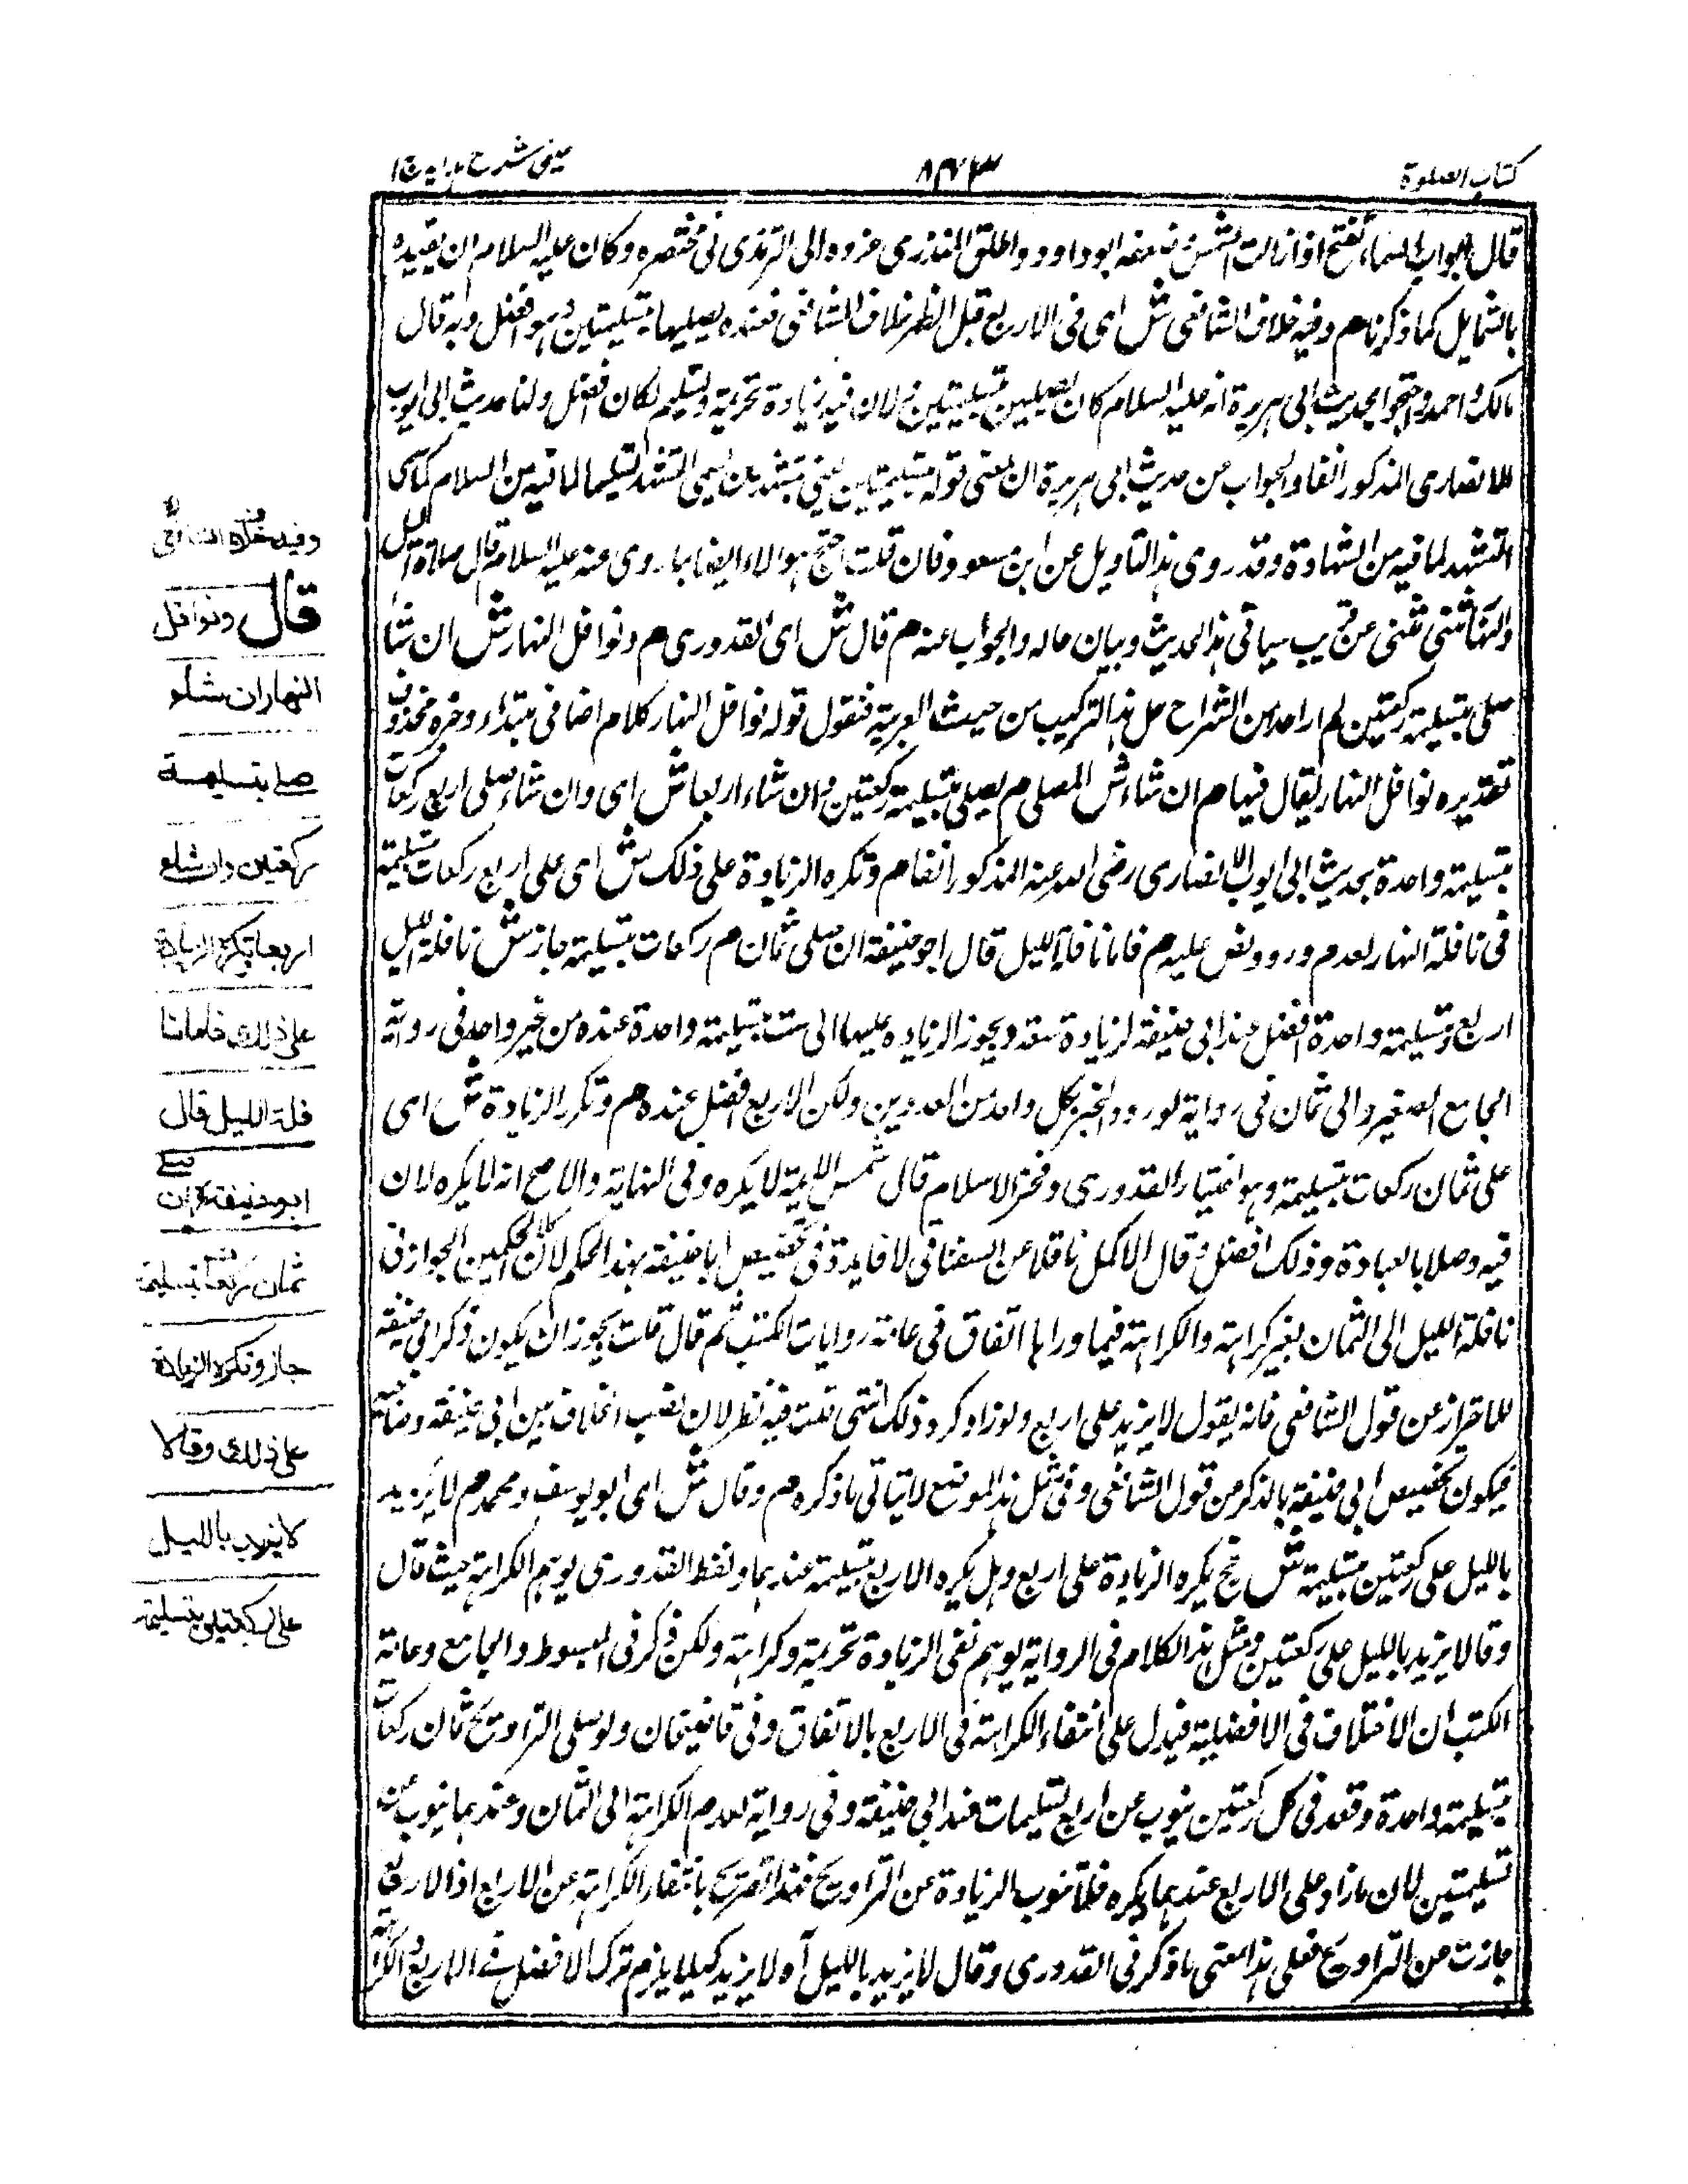 كتاب الصلوة
٨٤٣
عينى شرح هدايه ج١
قال ابواب السماء تفتح اذا زالت الشمس ضعفه ابو داود واطلق المنذرى عزوه الى الترمذى فى مختصره وكان عليه السلام ان يقيده
بالشمايل كما ذكرنا هم وفيه خلاف الشافعى ش اى فى الاربع قبل الظهر خلاف الشافعى فعنده يصليها بتسليمتين وهو افضل وبه قال
مالك واحمد واحتجوا بحديث ابى هريرة انه عليه السلام كان يصليهن بتسليمتين ولان فيه زيادة تحريمة وتسليم لكان افضل ولنا حديث ابى ايوب
الانصارى المذكور انفا والجواب عن حديث ابى هريرة ان معنى قوله بتسليمتين يعنى بتشهدين فسمى التشهد تسليما لما فيه من السلام كما سمى
التشهد لما فيه من الشهادة وقد روى هذا التاويل عن ابن مسعود فان قلت احتج هؤلاء ايضا بما روى عنه عليه السلام قال صلاة الليل
والنهار مثنى مثنى عن قريب سياتى هذا الحديث وبيان حاله والجواب عنه م قال ش اى القدورى م ونوافل النهار ش ان شاء
صلى بتسليمة ركعتين لم ار احد من الشراح حل هذا التركيب من حيث العربية فنقول قوله نوافل النهار كلام اضافى مبتداء وخبره محذوف
تقديره نوافل النهار يقال فيها م ان شاء ش المصلى م يصلى بتسليمة ركعتين وان شاء اربعا ش اى وان شاء صلى اربع ركعات
بتسليمة واحدة بحديث ابى ايوب الانصارى رضى الله عنه المذكور انفا م وتكره الزيادة على ذلك ش اى على اربع ركعات بتسليمة
فى نافلة النهار لعدم ورود نص عليه م فاما نافلة الليل قال ابو حنيفة ان صلى ثمان م ركعات بتسليمة جاز ش نافلة الليل
اربع بتسليمة واحدة افضل عند ابى حنيفة لزيادة ويجوز الزيادة عليها الى ست بتسليمة واحدة عنده من غير واحد فى رواية
الجامع الصغير والى ثمان فى رواية لورود الخبر بكل واحد من العددين ولكن الاربع افضل عنده م وتكره الزيادة ش اى
على ثمان ركعات بتسليمة وهو اختيار القدورى وفخر الاسلام قال شمس الايمة لا يكره وفى النهاية والاصح انه لا يكره لان
فيه وصلا بالعبادة وذلك افضل وقال الاكمل ناقلا عن السغناقى لا فايدة فى تخصيص ابا حنيفة بهذا الحكم لان كلا الحكمين الجواز فى
نافلة الليل الى الثمان بغير كراهة والكراهة فيما وراها اتفاق فى عامة روايات الكتب ثم قال قلت يجوز ان يكون ذكر ابى حنيفة
للاحتراز عن قول الشافعى فانه يقول لا يزيد على اربع ولو زاد كره ذلك انتهى قلت فيه نظر لان نصب الخلاف بين ابى حنيفة وصاحبيه
فيكون تخصيص ابى حنيفة بالذكر من قول الشافعى وفى مثل هذا الموضع لا يتاتى ما ذكره م وقال ش اى ابو يوسف ومحمد م لا يزيد
بالليل على ركعتين بتسليمة ش يكره الزيادة على اربع وهل يكره الاربع بتسليمة عندهما ولفظ القدورى يوهم الكراهة حيث قال
وقالا لا يزيد بالليل على ركعتين ومثل هذا الكلام فى الرواية يوهم نفى الزيادة تحريمة وكراهة ولكن ذكر فى المبسوط والجامع وعامة
الكتب ان الاختلاف فى الافضلية فيدل على انتفاء الكراهة فى الاربع بالاتفاق وفى قاضيخان ولو صلى التراويح ثمان ركعات
بتسليمة واحدة وقعد فى كل ركعتين ينوب عن اربع تسليمات عند ابى حنيفة وفى رواية لعدم الكراهة الى الثمان وعندهما ينوب عن
تسليمتين لان ما زاد على الاربع عندهما يكره فلا تنوب الزيادة عن التراويح فهذا تصريح بانتفاء الكراهة عن الاربع اذ الاربع
جازت من التراويح فعلى هذا معنى ما ذكر فى القدورى وقال لا يزيد بالليل اه لا يزيد كيلا يلزم ترك الافضل فى الاربع
وفيه خلاف الشافعى
قال ونوافل
النهار ان شاء
صلے بتسليمة
ركعتين وان شاء
اربعا وتكره الزيادة
على ذلك فاما نا
فلة الليل قال
ابو حنيفة ان صلے
ثمان ركعات بتسليمة
جاز وتكره الزيادة
على ذلك وقالا
لا يزيد بالليل
على ركعتين بتسليمة